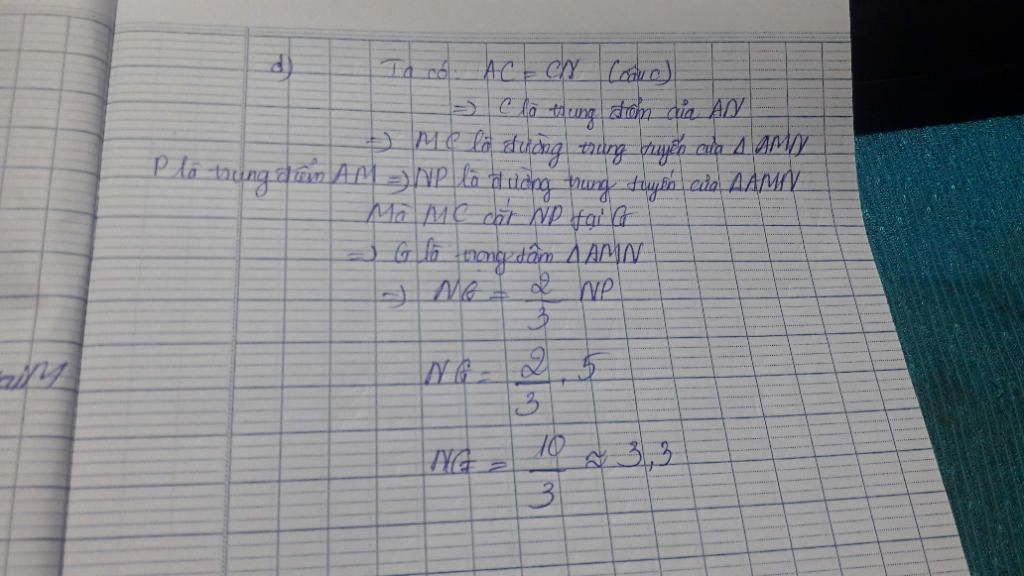 d) Ta có AC = CN (câu c)
=> C là trung điểm của AN
=> MC là đường trung tuyến của Δ AMN
P là trung điểm AM => NP là đường trung tuyến của ΔAMN
Mà MC cắt NP tại G
=> G là trọng tâm ΔAMN
=> NG = 2/3 NP
NG = 2/3 . 5
NG = 10/3 ≈ 3,3